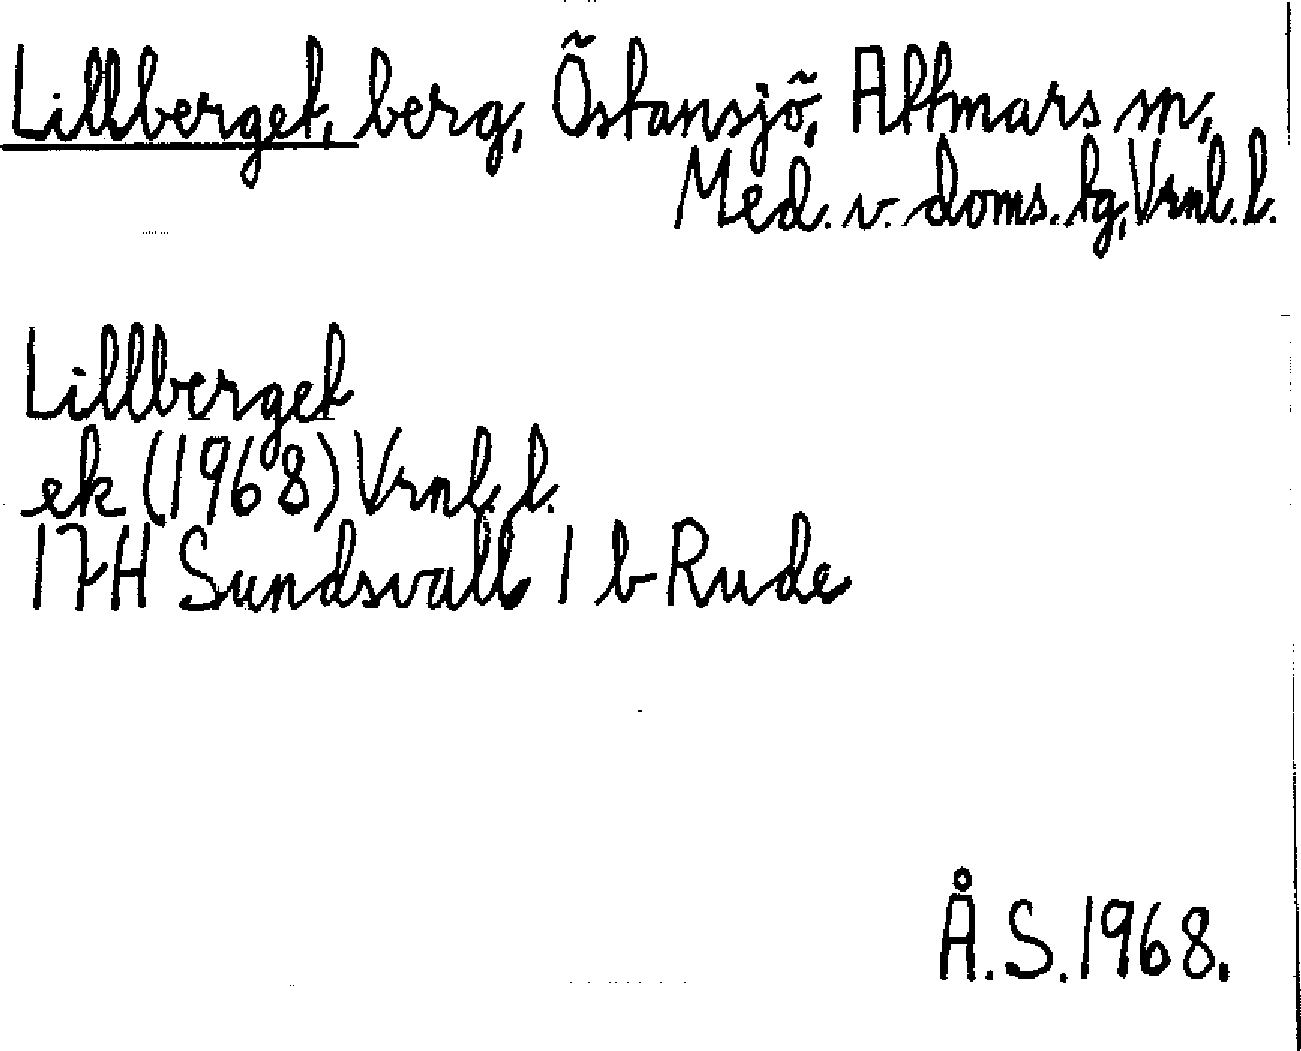 Lillberget, berg, Östansjö, Attmars sn,
Med. v. doms. tg, Vrnl. l.
Lillberget
ek (1968) Vrnl. l.
17H Sundsvall 1 b Rude
Å.S. 1968.